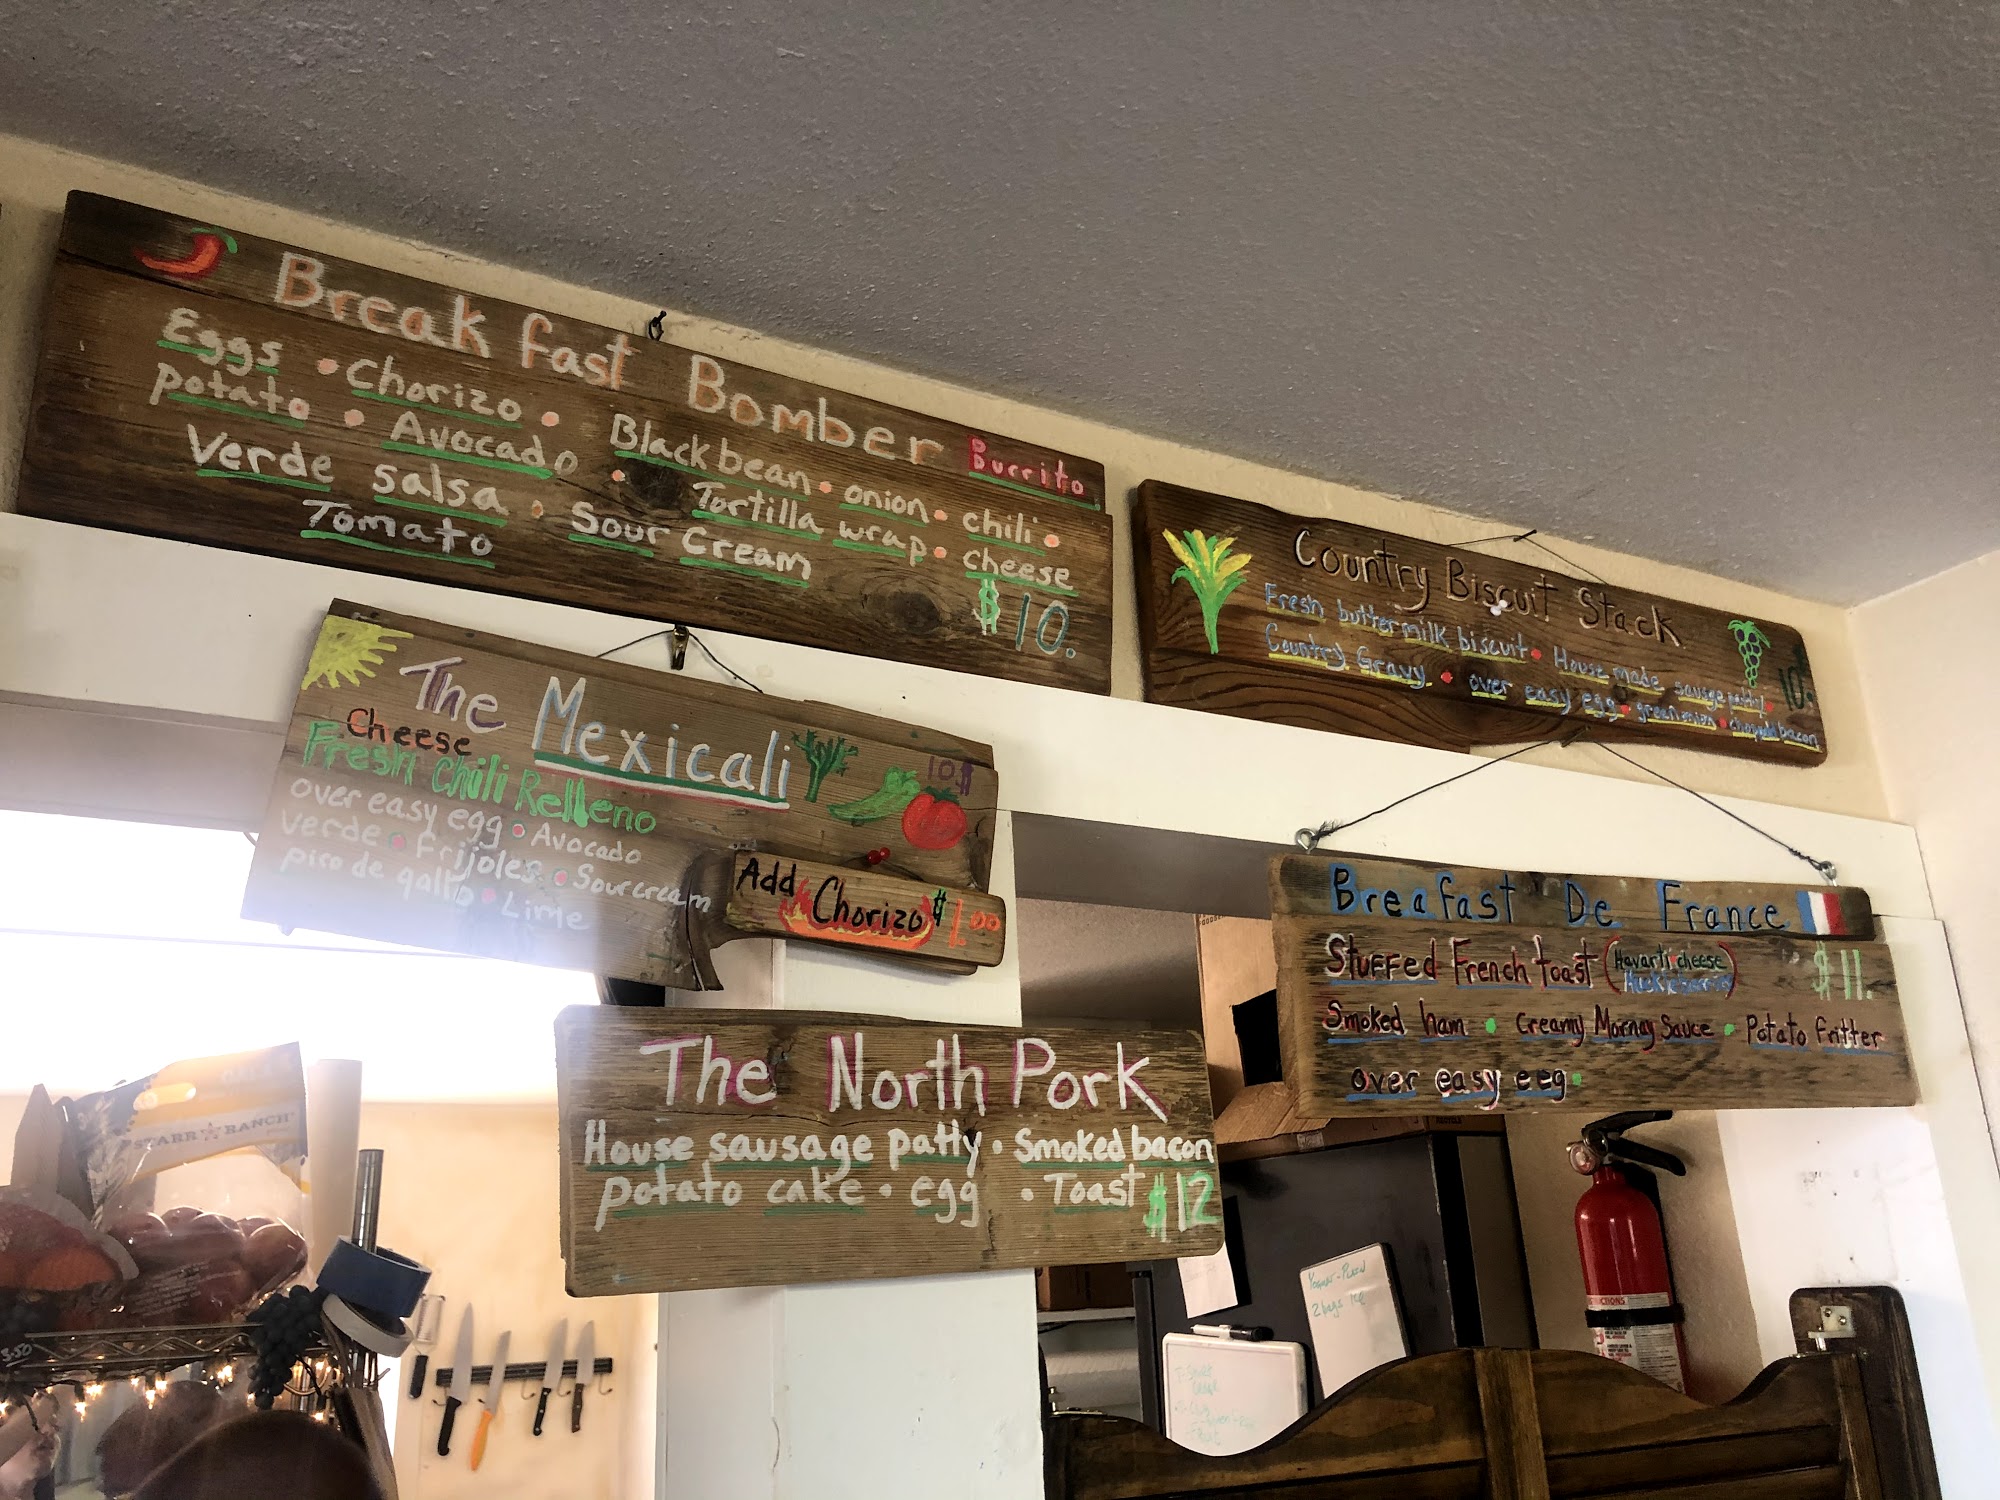 Breakfast Bomber Burrito
Eggs • Chorizo • Black bean • onion • chili •
potato • Avocado • Tortilla wrap • cheese
Verde salsa • Sour Cream
Tomato
$10.
Country Biscuit Stack
Fresh buttermilk biscuit • House made sausage patty •
Country Gravy • over easy egg • green onion • chopped bacon
10.
The Mexicali
10.$
Cheese
Fresh Chili Relleno
over easy egg • Avocado
verde • frijoles • Sour cream
pico de gallo • Lime
Add Chorizo $1.00
Breafast De France
Stuffed French toast (Havarti cheese
Huckleberries)
$11.
Smoked ham • Creamy Mornay Sauce • Potato fritter
over easy egg •
The North Pork
House sausage patty • Smoked bacon
potato cake • egg • Toast $12
STARR RANCH
3.50
2 bags ice